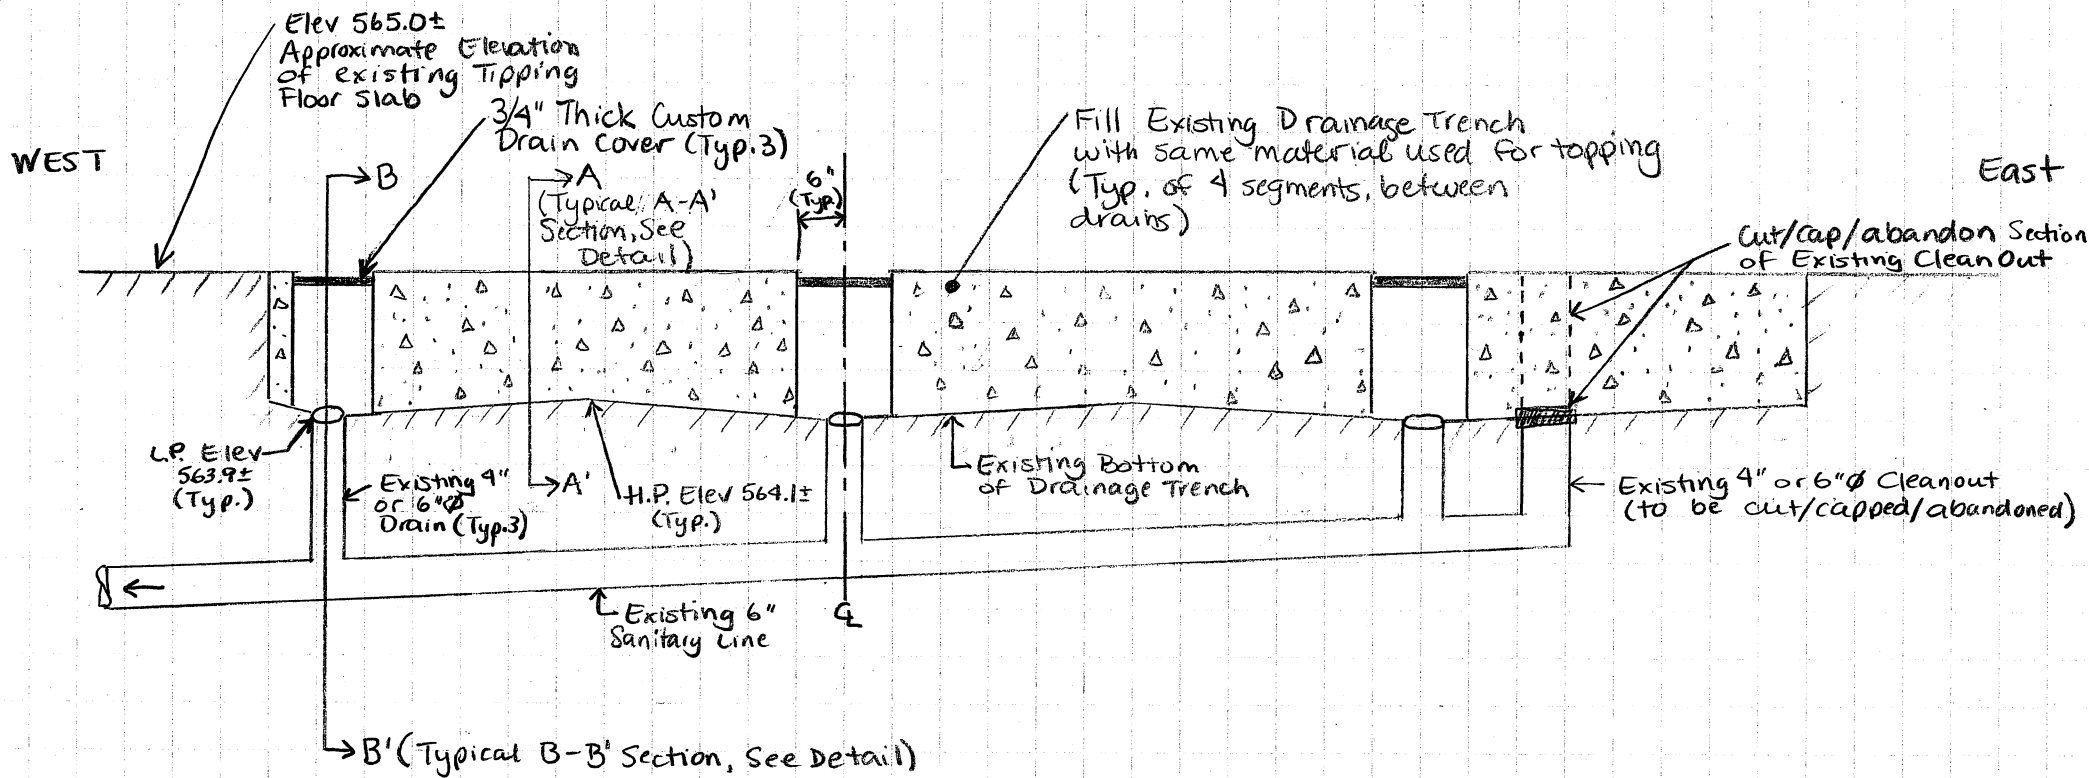 Elev 565.0±
Approximate Elevation
of existing Tipping
Floor Slab
3/4" Thick Custom
Drain Cover (Typ.3)
WEST
B
A
(Typical A-A'
Section, See
Detail)
6"
(Typ.)
Fill Existing Drainage Trench
with same material used for topping
(Typ. of 4 segments, between
drains)
East
Cut/cap/abandon Section
of Existing CleanOut
L.P. Elev
563.9±
(Typ.)
Existing 4"
or 6"Ø
Drain (Typ.3)
A'
H.P. Elev 564.1±
(Typ.)
Existing Bottom
of Drainage Trench
Existing 4" or 6"Ø Cleanout
(to be cut/capped/abandoned)
Existing 6"
Sanitary Line
CL
B' (Typical B-B' Section, See Detail)